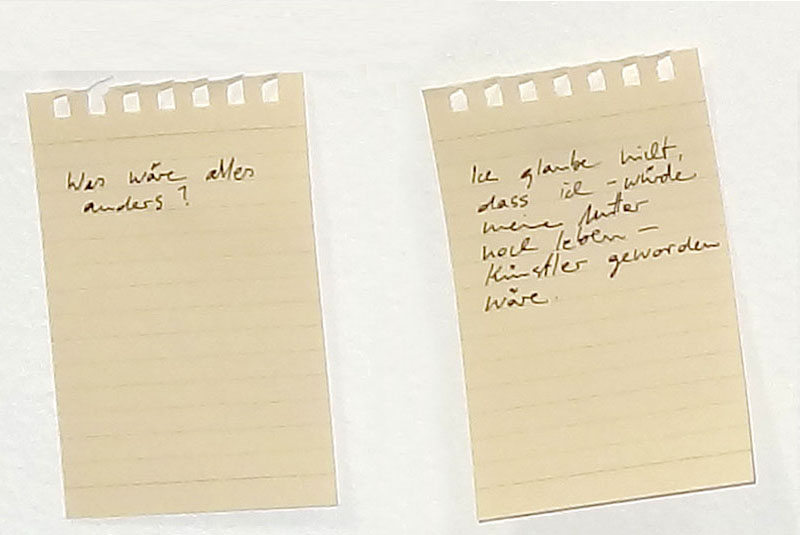 Was wäre alles
anders?
Ich glaube nicht,
dass ich – würde
meine Mutter
noch leben –
Künstler geworden
wäre.